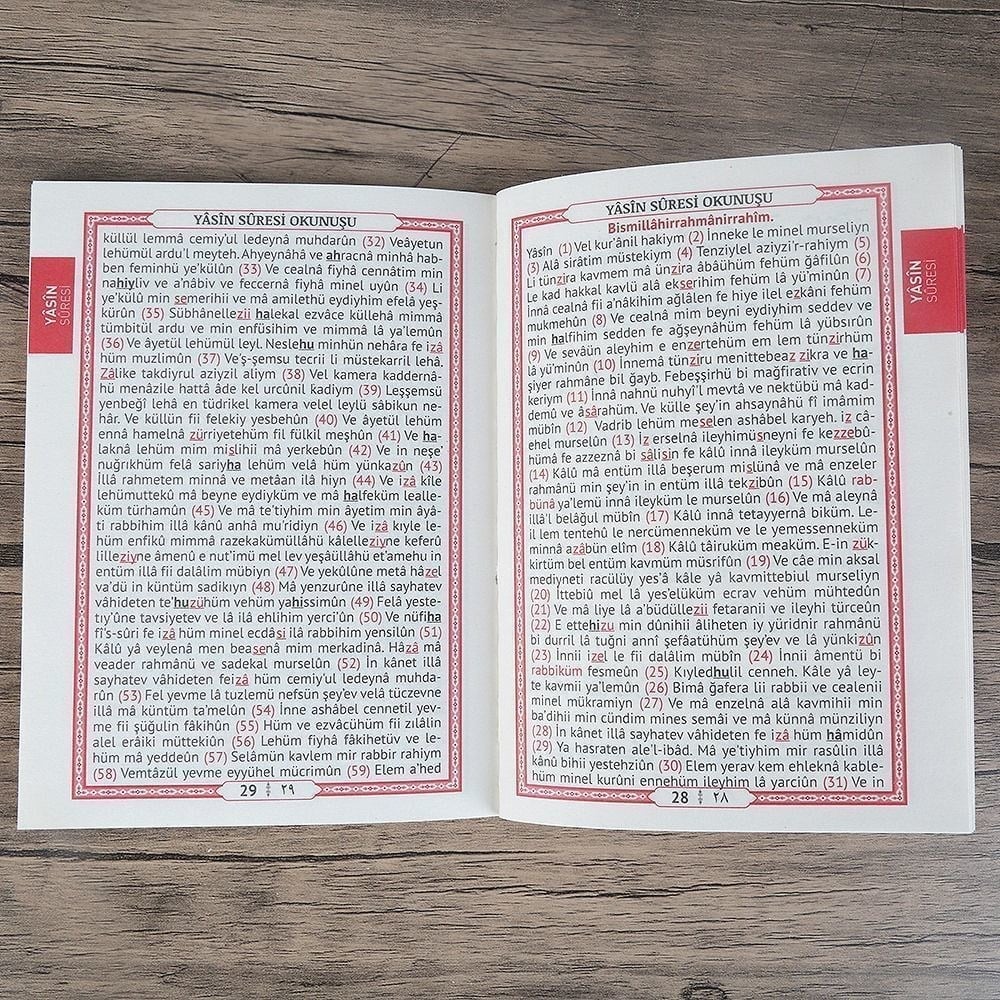 YÂSİN SÛRESİ OKUNUŞU
Bismillâhirrahmânirrahîm.
Yâsîn (1) Vel kur'ânil hakiym (2) İnneke le minel murseliyn
(3) Alâ sirâtim müstekiym (4) Tenziylel aziyzi'r-rahiym (5)
Li tünzira kavmem mâ ünzira âbâühüm fehüm ğafilûn (6)
Le kad hakkal kavlü alâ ekserihim fehüm lâ yü'minûn (7)
İnnâ cealnâ fii a'nâkihim ağlâlen fe hiye ilel ezkâni fehüm
mukmehûn (8) Ve cealnâ mim beyni eydiyhim seddev ve
min halfihim sedden fe ağşeynâhüm fehüm lâ yübsırûn
(9) Ve sevâün aleyhim e enzertehüm em lem tünzirhüm
lâ yü'minûn (10) İnnemâ tünziru menittebeaz zikra ve ha-
şiyer rahmâne bil ğayb. Febeşşirhü bi mağfirativ ve ecrin
keriym (11) İnnâ nahnü nuhyi'l mevtâ ve nektübü mâ kad-
demû ve âsârahüm. Ve külle şey'in ahsaynâhü fî imâmim
mübîn (12) Vadrib lehüm meselen ashâbel karyeh. iz câ-
ehel murselûn (13) İz erselnâ ileyhimüsneyni fe kezzebû-
hümâ fe azzeznâ bi sâlisin fe kâlû innâ ileyküm murselûn
(14) Kâlû mâ entüm illâ beşerum mislünâ ve mâ enzeler
rahmânü min şey'in in entüm illâ tekzibûn (15) Kâlû rab-
bünâ ya'lemü innâ ileyküm le murselûn (16) Ve mâ aleynâ
illâ'l belâğul mübîn (17) Kâlû innâ tetayyernâ biküm. Le-
il lem tentehû le nercümenneküm ve le yemessenneküm
minnâ azâbün elîm (18) Kâlû tâiruküm meaküm. E-in zük-
kirtüm bel entüm kavmüm müsrifûn (19) Ve câe min aksal
mediyneti racülüy yes'â kâle yâ kavmittebiul murseliyn
(20) İttebiû mel lâ yes'elüküm ecrav vehüm mühtedûn
(21) Ve mâ liye lâ a'büdüllezii fetaranii ve ileyhi türceûn
(22) E ettehizu min dûnihii âliheten iy yüridnir rahmânü
bi durril lâ tuğni annî şefaâtühüm şey'ev ve lâ yünkizûn
(23) İnnii izel le fii dalâlim mübîn (24) İnnii âmentü bi
rabbiküm fesmeûn (25) Kıyledhulil cenneh. Kâle yâ ley-
te kavmii ya'lemûn (26) Bimâ ğafera lii rabbii ve cealenii
minel mükramiyn (27) Ve mâ enzelnâ alâ kavmihii min
ba'dihii min cündim mines semâi ve mâ künnâ münziliyn
(28) İn kânet illâ sayhatev vâhideten fe izâ hüm hâmidûn
(29) Ya hasraten ale'l-ibâd. Mâ ye'tiyhim mir rasûlin illâ
kânû bihii yestehziûn (30) Elem yerav kem ehleknâ kable-
hüm minel kurûni ennehüm ileyhim lâ yarciûn (31) Ve in
28 ٢٨
YÂSÎN
SÛRESİ
YÂSİN SÛRESİ OKUNUŞU
küllül lemmâ cemiy'ul ledeynâ muhdarûn (32) Veâyetun
lehümül ardu'l meyteh. Ahyeynâhâ ve ahracnâ minhâ hab-
ben feminhü ye'külûn (33) Ve cealnâ fiyhâ cennâtim min
nahiyliv ve a'nâbiv ve feccernâ fiyhâ minel uyûn (34) Li
ye'külû min semerihii ve mâ amilethü eydiyhim efelâ yeş-
kürûn (35) Sübhânellezii halekal ezvâce küllehâ mimmâ
tümbitül ardu ve min enfüsihim ve mimmâ lâ ya'lemûn
(36) Ve âyetül lehümül leyl. Neslehu minhün nehâra fe izâ
hüm muzlimûn (37) Ve'ş-şemsu tecrii li müstekarril lehâ.
Zâlike takdiyrul aziyzil aliym (38) Vel kamera kaddernâ-
hü menâzile hattâ âde kel urcûnil kadiym (39) Leşşemsü
yenbeğî lehâ en tüdrikel kamera velel leylü sâbikun ne-
hâr. Ve küllün fii felekiy yesbehûn (40) Ve âyetül lehüm
ennâ hamelnâ zürriyetehüm fil fülkil meşhûn (41) Ve ha-
laknâ lehüm mim mislihii mâ yerkebûn (42) Ve in neşe'
nuğrıkhüm felâ sariyha lehüm velâ hüm yünkazûn (43)
İllâ rahmetem minnâ ve metâan ilâ hiyn (44) Ve izâ kîle
lehümuttekû mâ beyne eydiyküm ve mâ halfeküm lealle-
küm türhamûn (45) Ve mâ te'tiyhim min âyetim min âyâ-
ti rabbihim illâ kânû anhâ mu'ridiyn (46) Ve izâ kıyle le-
hüm enfikû mimmâ razekakümüllâhü kâlelleziyne keferû
lilleziyne âmenû e nut'imü mel lev yeşâüllâhü et'amehu in
entüm illâ fii dalâlim mübiyn (47) Ve yekûlûne metâ hâzel
va'dü in küntüm sadikıyn (48) Mâ yenzurûne illâ sayhatev
vâhideten te'huzühüm vehüm yahissimûn (49) Felâ yeste-
tıy'ûne tavsiyetev ve lâ ilâ ehlihim yerci'ûn (50) Ve nüfiha
fî's-sûri fe izâ hüm minel ecdâsi ilâ rabbihim yensilûn (51)
Kâlû yâ veylenâ men beasenâ mim merkadinâ. Hâzâ mâ
veader rahmânü ve sadekal murselûn (52) İn kânet illâ
sayhatev vâhideten feizâ hüm cemiy'ul ledeynâ muhda-
rûn (53) Fel yevme lâ tuzlemü nefsün şey'ev velâ tüczevne
illâ mâ küntüm ta'melûn (54) İnne ashâbel cennetil yev-
me fii şüğulin fâkihûn (55) Hüm ve ezvâcühüm fii zılâlin
alel erâiki müttekiûn (56) Lehüm fiyhâ fâkihetüv ve le-
hüm mâ yeddeûn (57) Selâmün kavlem mir rabbir rahiym
(58) Vemtâzül yevme eyyühel mücrimûn (59) Elem a'hed
29 ٢٩
YÂSÎN
SÛRESİ